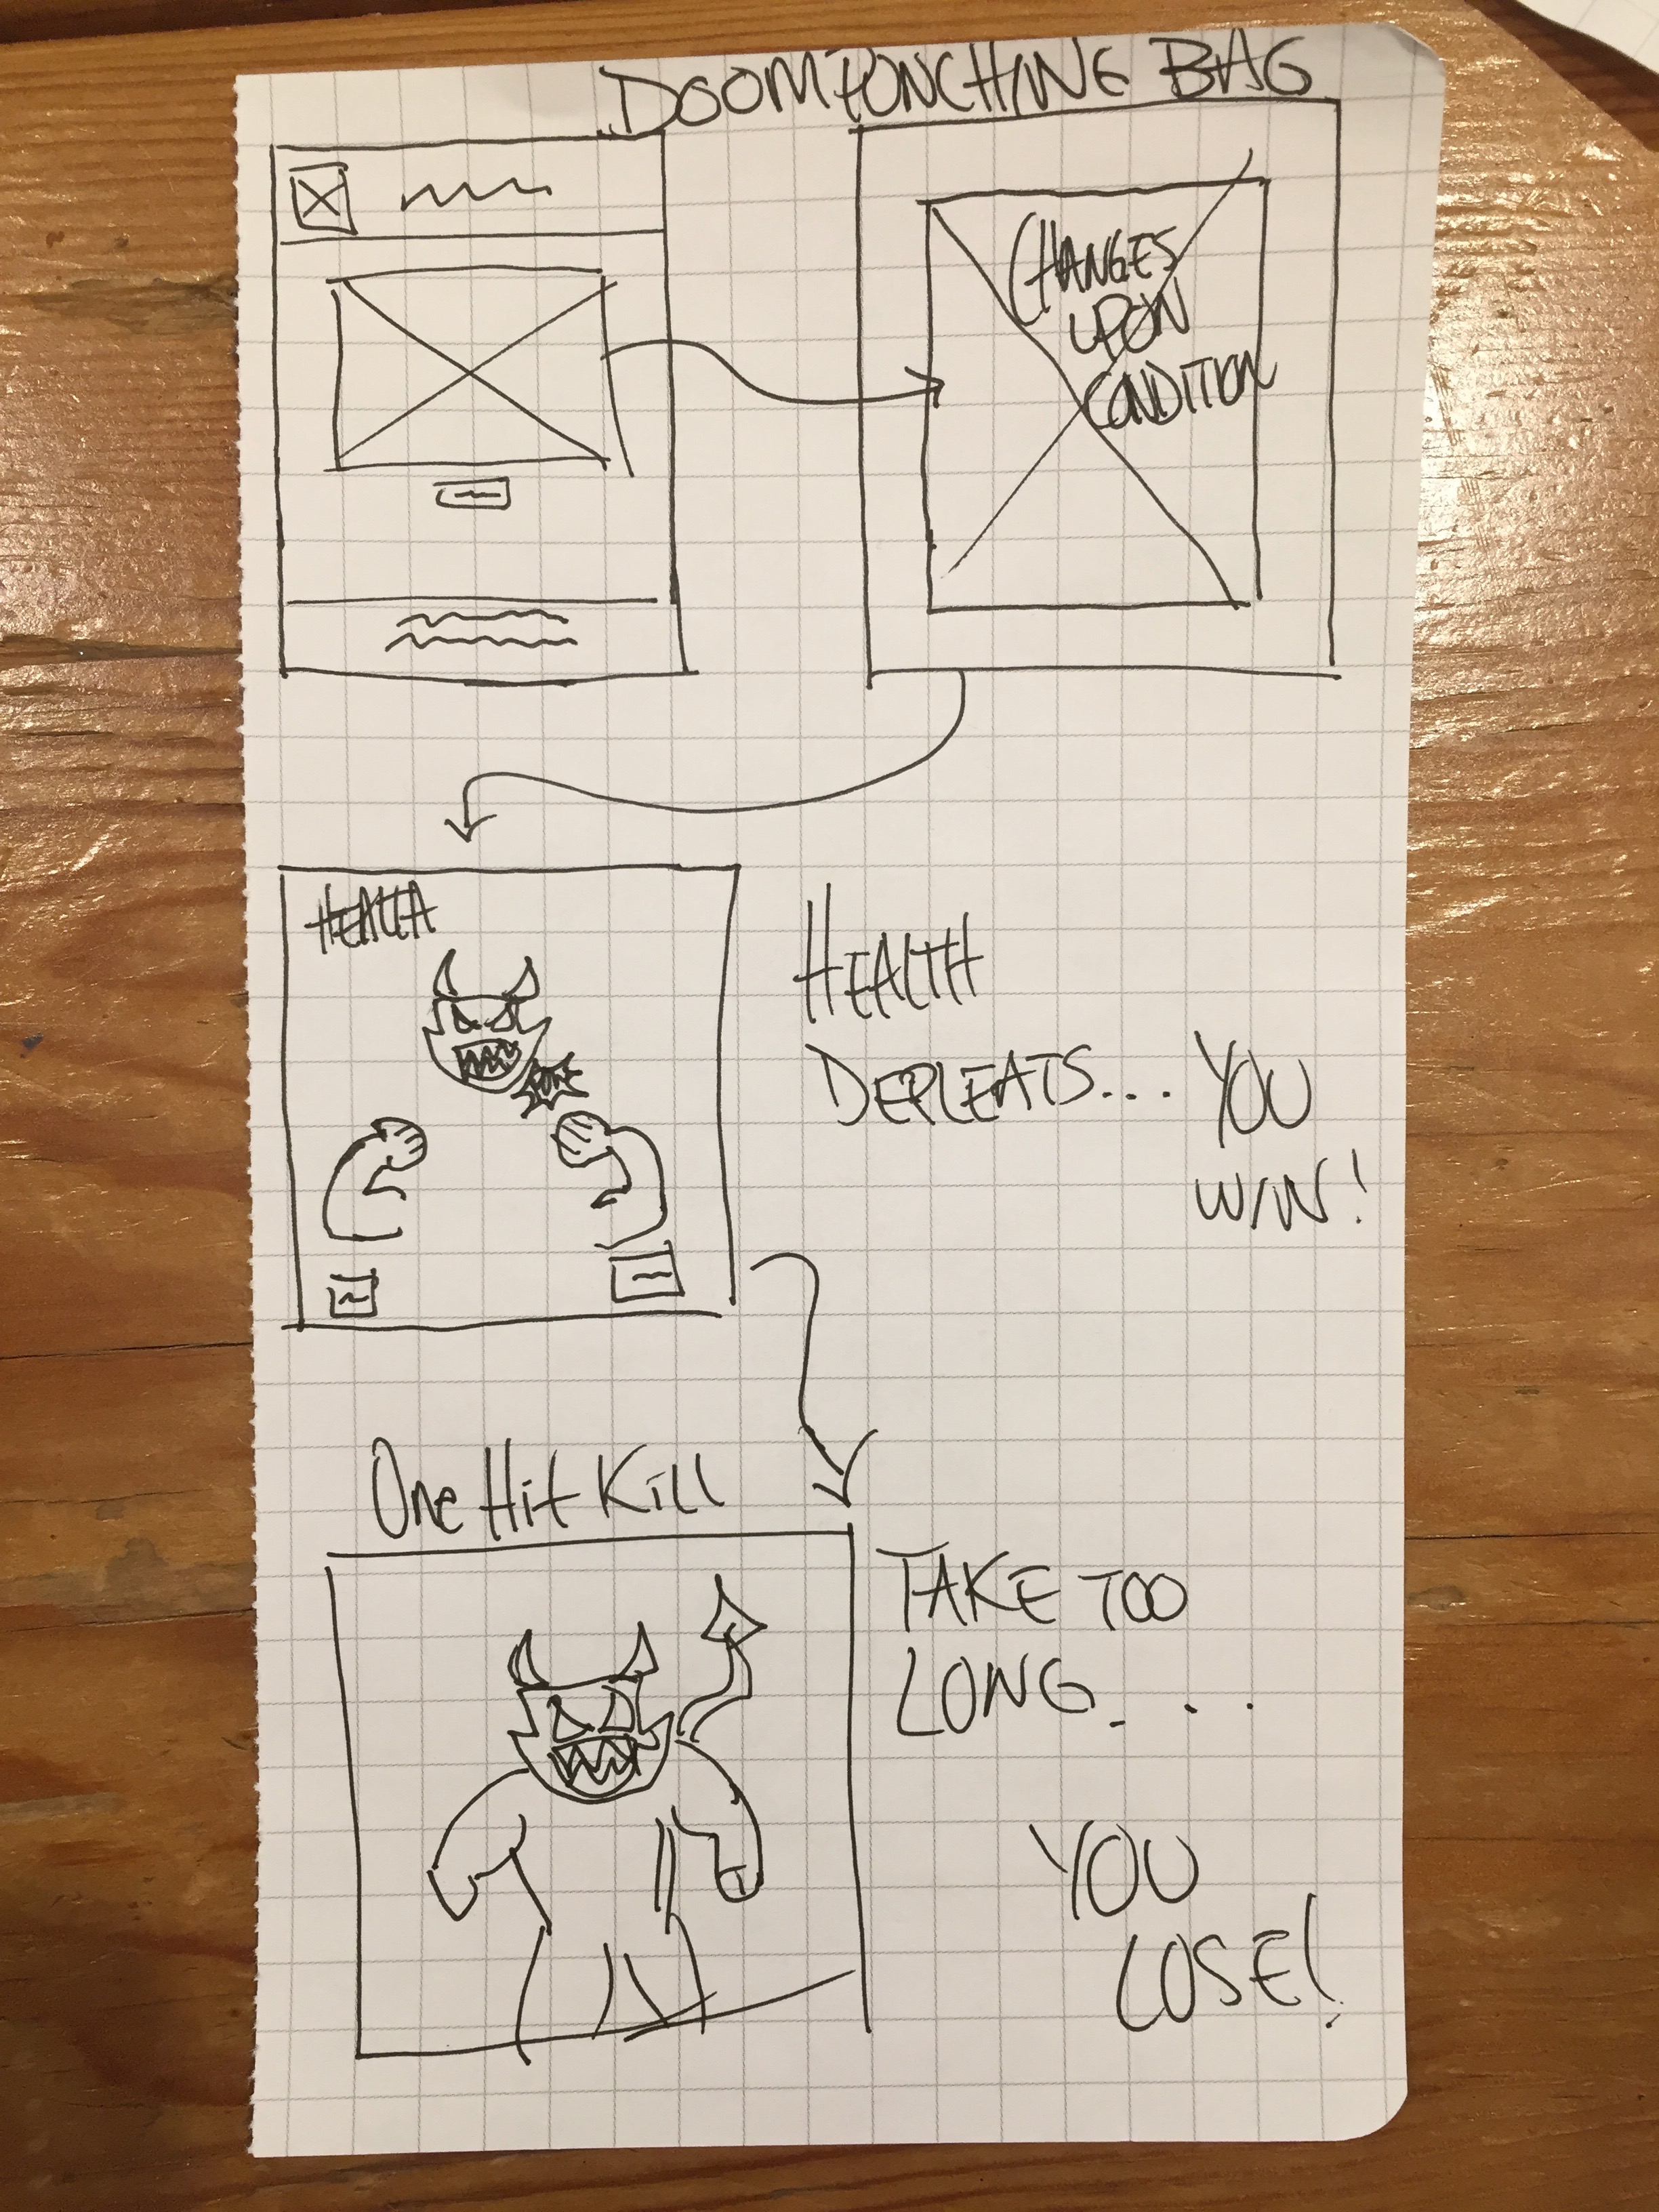 DOOM PUNCHING BAG
CHANGES
UPON
CONDITION
HEALTH
HEALTH
DEPLEATS... YOU
WIN!
One Hit Kill
TAKE TOO
LONG...
YOU
LOSE!